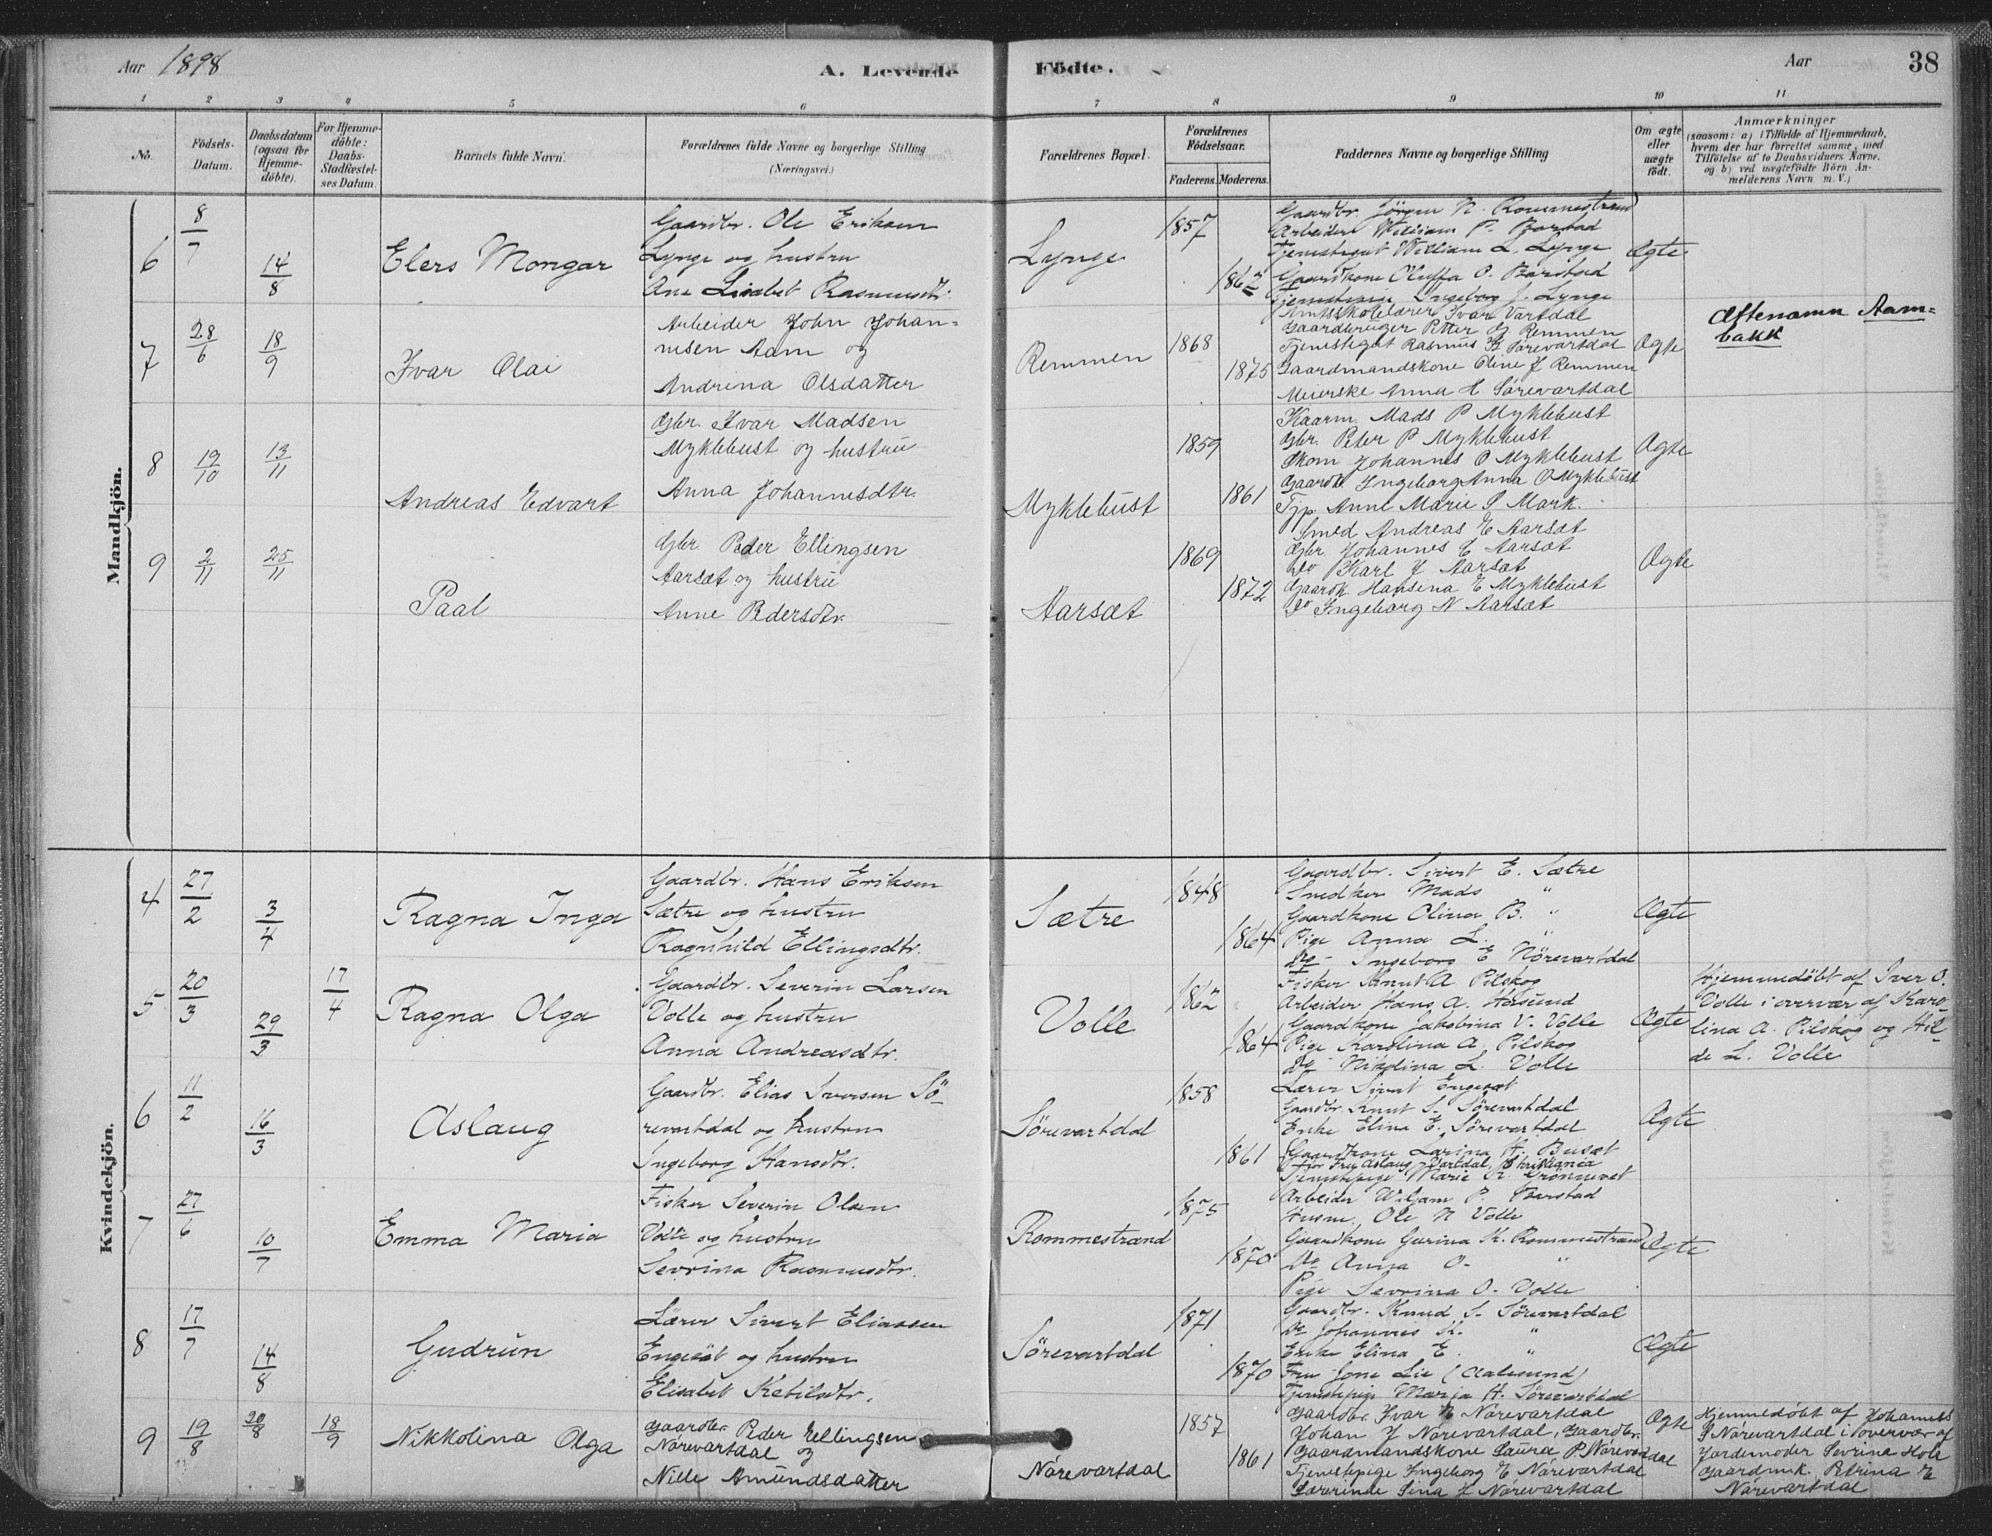 Aar 1898
A. Levende Födte.
Aar
38
1 2 3 4 5 6 7 8 9 10 11
No.
Födsels-
Datum.
Daabsdatum
(ogsaa for
Hjemme-
döbte).
For Hjemme-
döbte:
Daabs-
Stadfæstel-
ses Datum.
Barnets fulde Navn.
Forældrenes fulde Navne og borgerlige Stilling
(Næringsvei.)
Forældrenes Bopæl.
Forældrenes
Födselsaar.
Faderens. Moderens.
Faddernes Navne og borgerlige Stilling
Om ægte
eller
uægte
födt.
Anmærkninger
(saasom: a) i Tilfælde af Hjemmedaab,
hvem der har forrettet samme, med
Tilföielse af to Daabsvidners Navne,
og b) ved uægtefödte Börn An-
melderens Navn m. V.)
Mandkjön.
6
8/7
14/8
Elers Mongar
Gaardbr. Ole Eriksen
Lynge og hustru
Ane Lisabet Rasmusdtr.
Lynge
1857
Gaardbr. Jörgen N. Rommestrand
Arbeider William P. Barstad
Tjenestegut William L. Lynge
Gaardkone Oluffa O. Barstad
Tjenestepige Ingeborg J. Lynge
Ægte
7
28/6
18/9
Ivar Olai
Arbeider John Johan=
nesen Aam og
Andrina Olsdatter
Remmen
1868
1875
Amtsskolelærer Ivar Vartdal
Gaardbruger Petter J Remmen
Tjenestegut Rasmus H Sörevartdal
Gaardmandskone Oline J Remmen
Meierske Anna H Sörevartdal
Ægte
Æftenamn Aam=
bakk
8
19/10
13/11
Andreas Edvart
Gbr. Ivar Madsen
Myklebust og hustru
Anna Johannesdtr.
Myklebust
1859
1861
Kaarm. Mads P Myklebust
Gbr. Peter P Myklebust
Johannes O Myklebust
Gaardk Ingeborg Anna O Myklebust
Tjp. Anne Marie P Mark.
Ægte
9
2/11
25/11
Paal
Gbr Peder Ellingsen
Aarsæt og hustru
Anne Pedersdtr.
Aarsæt
1869
1872
Smed Andreas E Aarsæt
Gbr. Johannes E Aarsæt
Do Karl J Aarsæt
Gaardk Hansina E Myklebust
Do Ingeborg N Aarsæt
Ægte
Kvindekjön.
4
27/2
3/4
Ragna Inga
Gaardbr. Hans Eriksen
Sætre og hustru
Ragnhild Ellingsdtr.
Sætre
1848
1864
Gaardbr. Sivert E. Sætre
Snedker Mads "
Gaardkone Olina B. "
Pige Anna L. "
do - Ingeborg E Nörevartdal
Ægte
5
20/3
29/3
17/4
Ragna Olga
Gaardbr. Severin Larsen
Volle og hustru
Anna Andreasdtr.
Volle
1862
1864
Fisker Knut A Pilskog
Arbeider Hans A. Häsund
Gaardkone Jakobina V. Volle
Pige Karolina A. Pilskog
do Nikolina L. Volle
Ægte
Hjemmedöbt af Iver O.
Volle i overvær af Karo
lina A. Pilskog og Hil-
de L. Volle
6
11/2
16/3
Aslaug
Gaardbr. Elias Iversen Sö-
revartdal og hustru
Ingeborg Hansdtr.
Sörevartdal
1858
1861
Lærer Sivert Engesæt
Gaardbr Knut S. Sörevartdal
Enke Elina E. Sörevartdal
Gaardkone Larina H. Busæt
for Frk Aslaug Vartdal, Kristiania
Tjenestepige Marie K. Grönnevet
Ægte
7
27/6
10/7
Emma Maria
Fisker Severin Olsen
Volle og hustru
Sevrina Rasmusdtr.
Rommestrand
1875
1870
Arbeider Wiljam P. Barstad
Husm. Ole N Volle
Gaardkone Gurina K. Rommestrand
do Anna O- "
Pige Sevrina O- Volle
Ægte
8
17/7
14/8
Gudrun
Lærer Sivert Eliassen
Engesæt og hustru
Elisabet Ketilsdtr.
Sörevartdal
1871
1870
Gaardbr. Knud S. Sörevartdal
do Johannes K. "
Enke Elina E. "
Fru Jone Lie (Aalesund)
Tjenestepige Marja H. Sörevartdal
Ægte
9
19/8
20/8
18/9
Nikkolina Olga
Gaardbr. Peder Ellingsen
Nörevartdal og
Nille Amundsdatter
Nörevartdal
1857
1861
Gaardbr. Ivar N Nörevartdal
Johan J Nörevartdal, Gaardbr.
Gaardmandskone Laura P. Nörevartdal
Tjenestepige Ingeborg E Nörevartdal
Lærerinde Sina J Nörevartdal
Ægte
Hjemmedöbt af Johannes
P Nörevartdal i overvær af
Jordemoder Sevrina Hole
Gaardmk. Petrina E
Nörevartdal